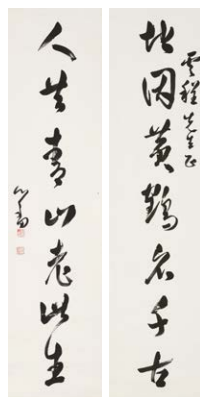 雲程先生正
地因黃鶴名千古
人共青山老此生
心畬